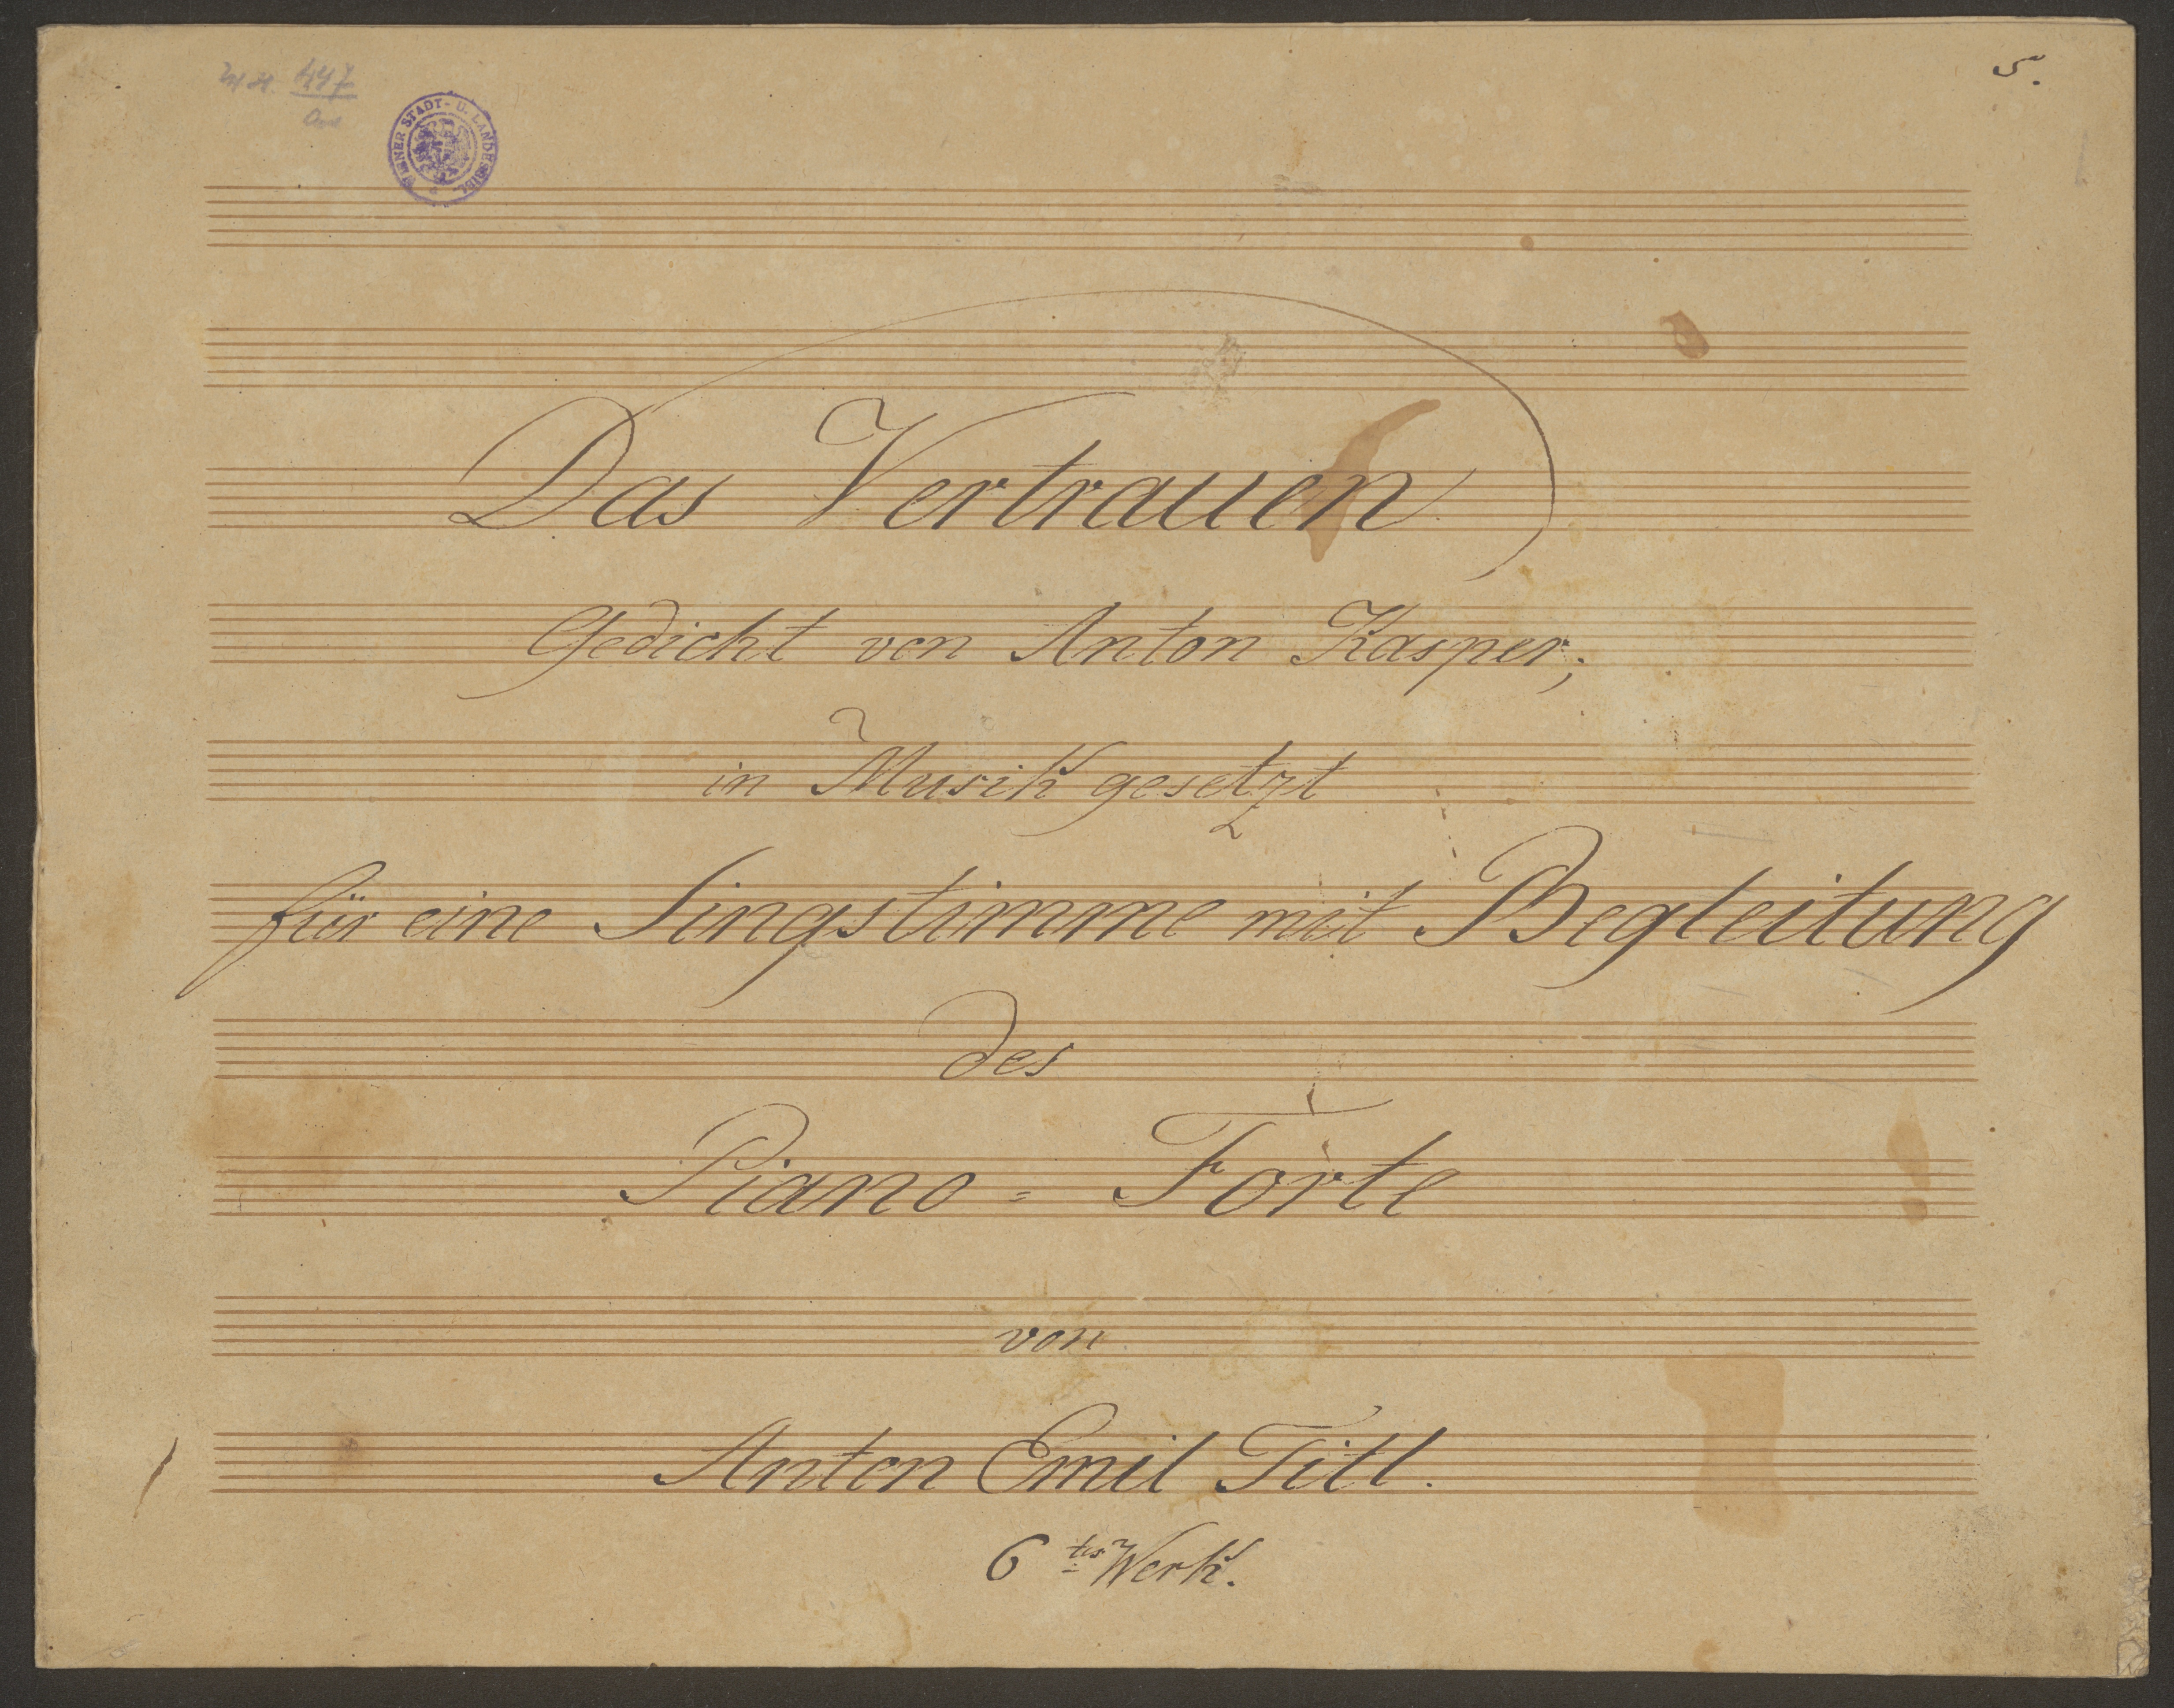 5.
447
WIENER STADT- U. LANDESBIBL.
Das Vertrauen
Gedicht von Anton Kasper;
in Musik gesetzt
für eine Singstimme mit Begleitung
des
Piano = Forte
von
Anton Emil Titl.
6tes Werk.